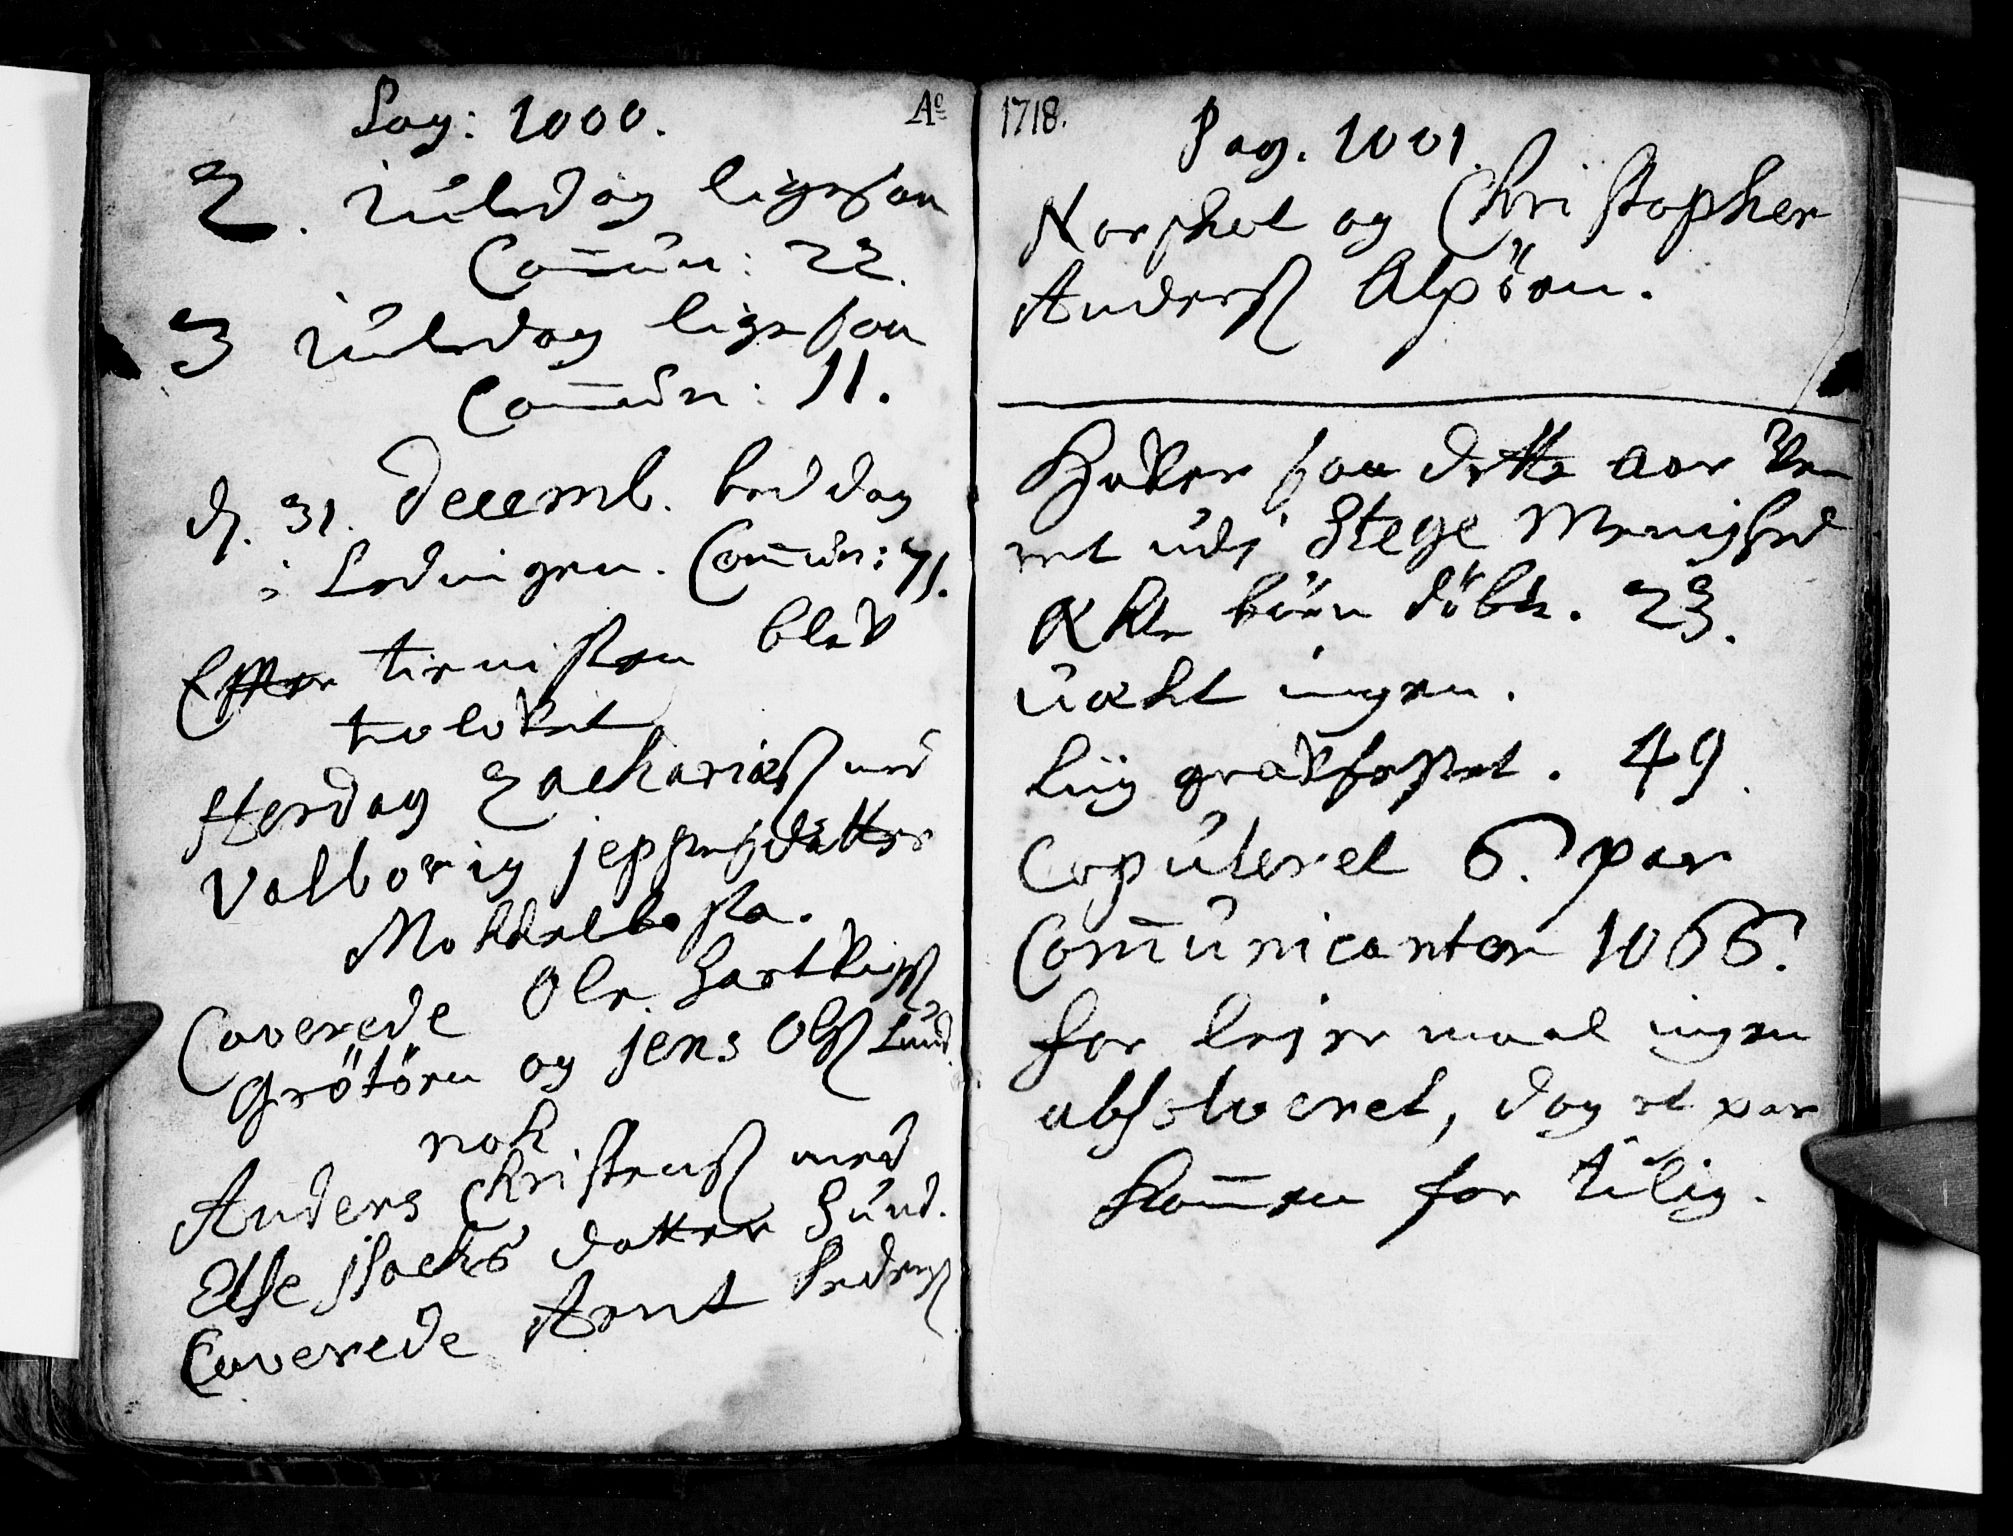 Pag: 1000.
Aº
2. Juledag ligesaa
Com̄un: 22.
3 Juledag ligesaa
Com̄un: 11.
dj. 31. Decemb. beddag
i Lødingen. Com̄un: 71.
Effter tienisten blev
trolovet
Herdag Zachariæß med
Valborig jeppesdatter
Caverede Ole Hartvigß
Grötöen og jens Olß Lund.
nok
Anders Christenß med
Else jsachs datter Sund.
Caverede Arnt Pederß
1718.
Pag. 1001.
Norshel og Christopher
Anderß Alpöen.
Haver saa dette aar væ
ret udj Stege Menighed
Ækte börn döbte. 23.
uækt ingen.
Liig gravfæstet. 49.
Copuleret 6. par
Com̄unicanter 1066.
for leyermaal ingen
absolveret, dog et par
kom̄en for tilig.